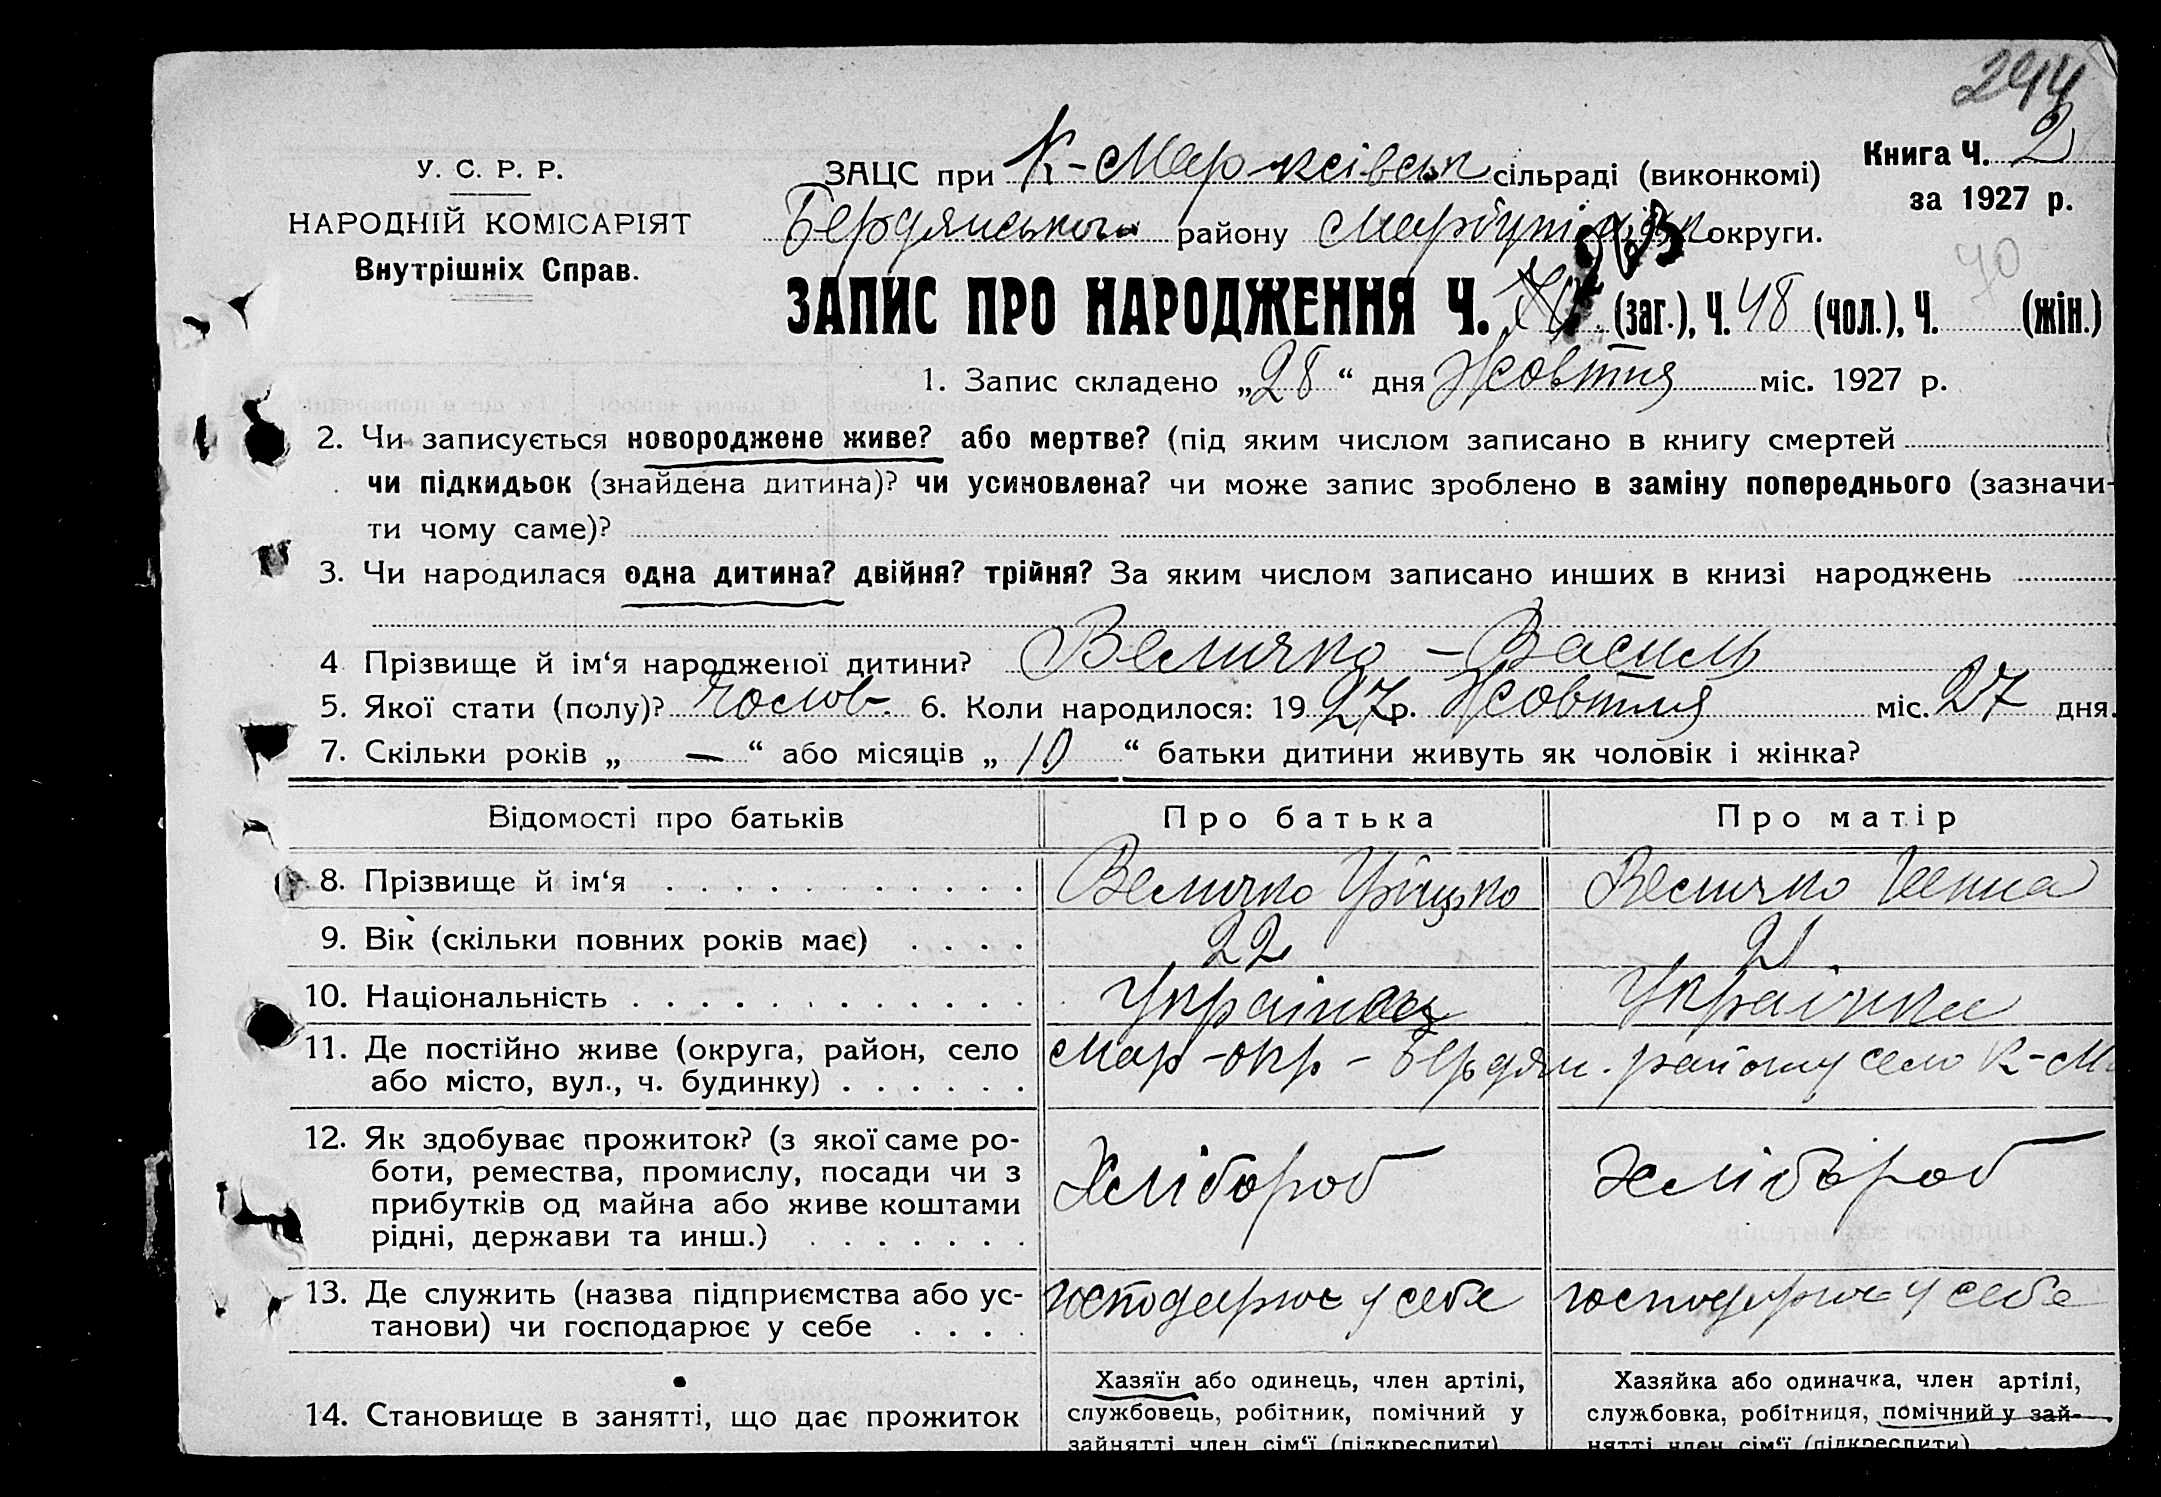 244
Книга Ч. 2
за 1927 р.
У. С. Р. Р.
НАРОДНІЙ КОМІСАРІЯТ
Внутрішніх Справ.
ЗАЦС при К-Марксівськ сільраді (виконкомі)
Бердянського району округи.
40
ЗАПИС ПРО НАРОДЖЕННЯ Ч. (заг.), Ч. 48 (чол.), Ч. (жін.)
1. Запис складено „28“ дня Жовтня міс. 1927 р.
2. Чи записується новороджене живе? або мертве? (під яким числом записано в книгу смертей
чи підкидьок (знайдена дитина)? чи усиновлена? чи може запис зроблено в заміну попереднього (зазначи-
ти чому саме)?
3. Чи народилася одна дитина? двійня? трійня? За яким числом записано инших в книзі народжень
4 Прізвище й ім‘я народженої дитини? Величко – Василь
5. Якої стати (полу)? чолов. 6. Коли народилося: 1927р. Жовтня міс. 27 дня.
7. Скільки років „ — “ або місяців „ 10 “ батьки дитини живуть як чоловік і жінка?
Відомості про батьків Про батька Про матір
8. Прізвище й ім‘я Величко Грицько Величко Ганна
9. Вік (скільки повних років має) 22 21
10. Національність Українец Українка
11. Де постійно живе (округа, район, село Мар-окр – Бердян. району село К-М
або місто, вул., ч. будинку)
12. Як здобуває прожиток? (з якої саме ро-
боти, ремества, промислу, посади чи з Хлібороб Хлібороб
прибутків од майна або живе коштами
рідні, держави та инш.)
13. Де служить (назва підприємства або ус- господарює у себе господарює у себе
танови) чи господарює у себе
14. Становище в занятті, що дає прожиток
Хазяїн або одинець, член артілі,
службовець, робітник, помічний у
зайнятті член сім‘ї (підкреслити)
Хазяйка або одиначка, член артілі,
службовка, робітниця, помічний у зай-
нятті член сім‘ї (підкреслити)